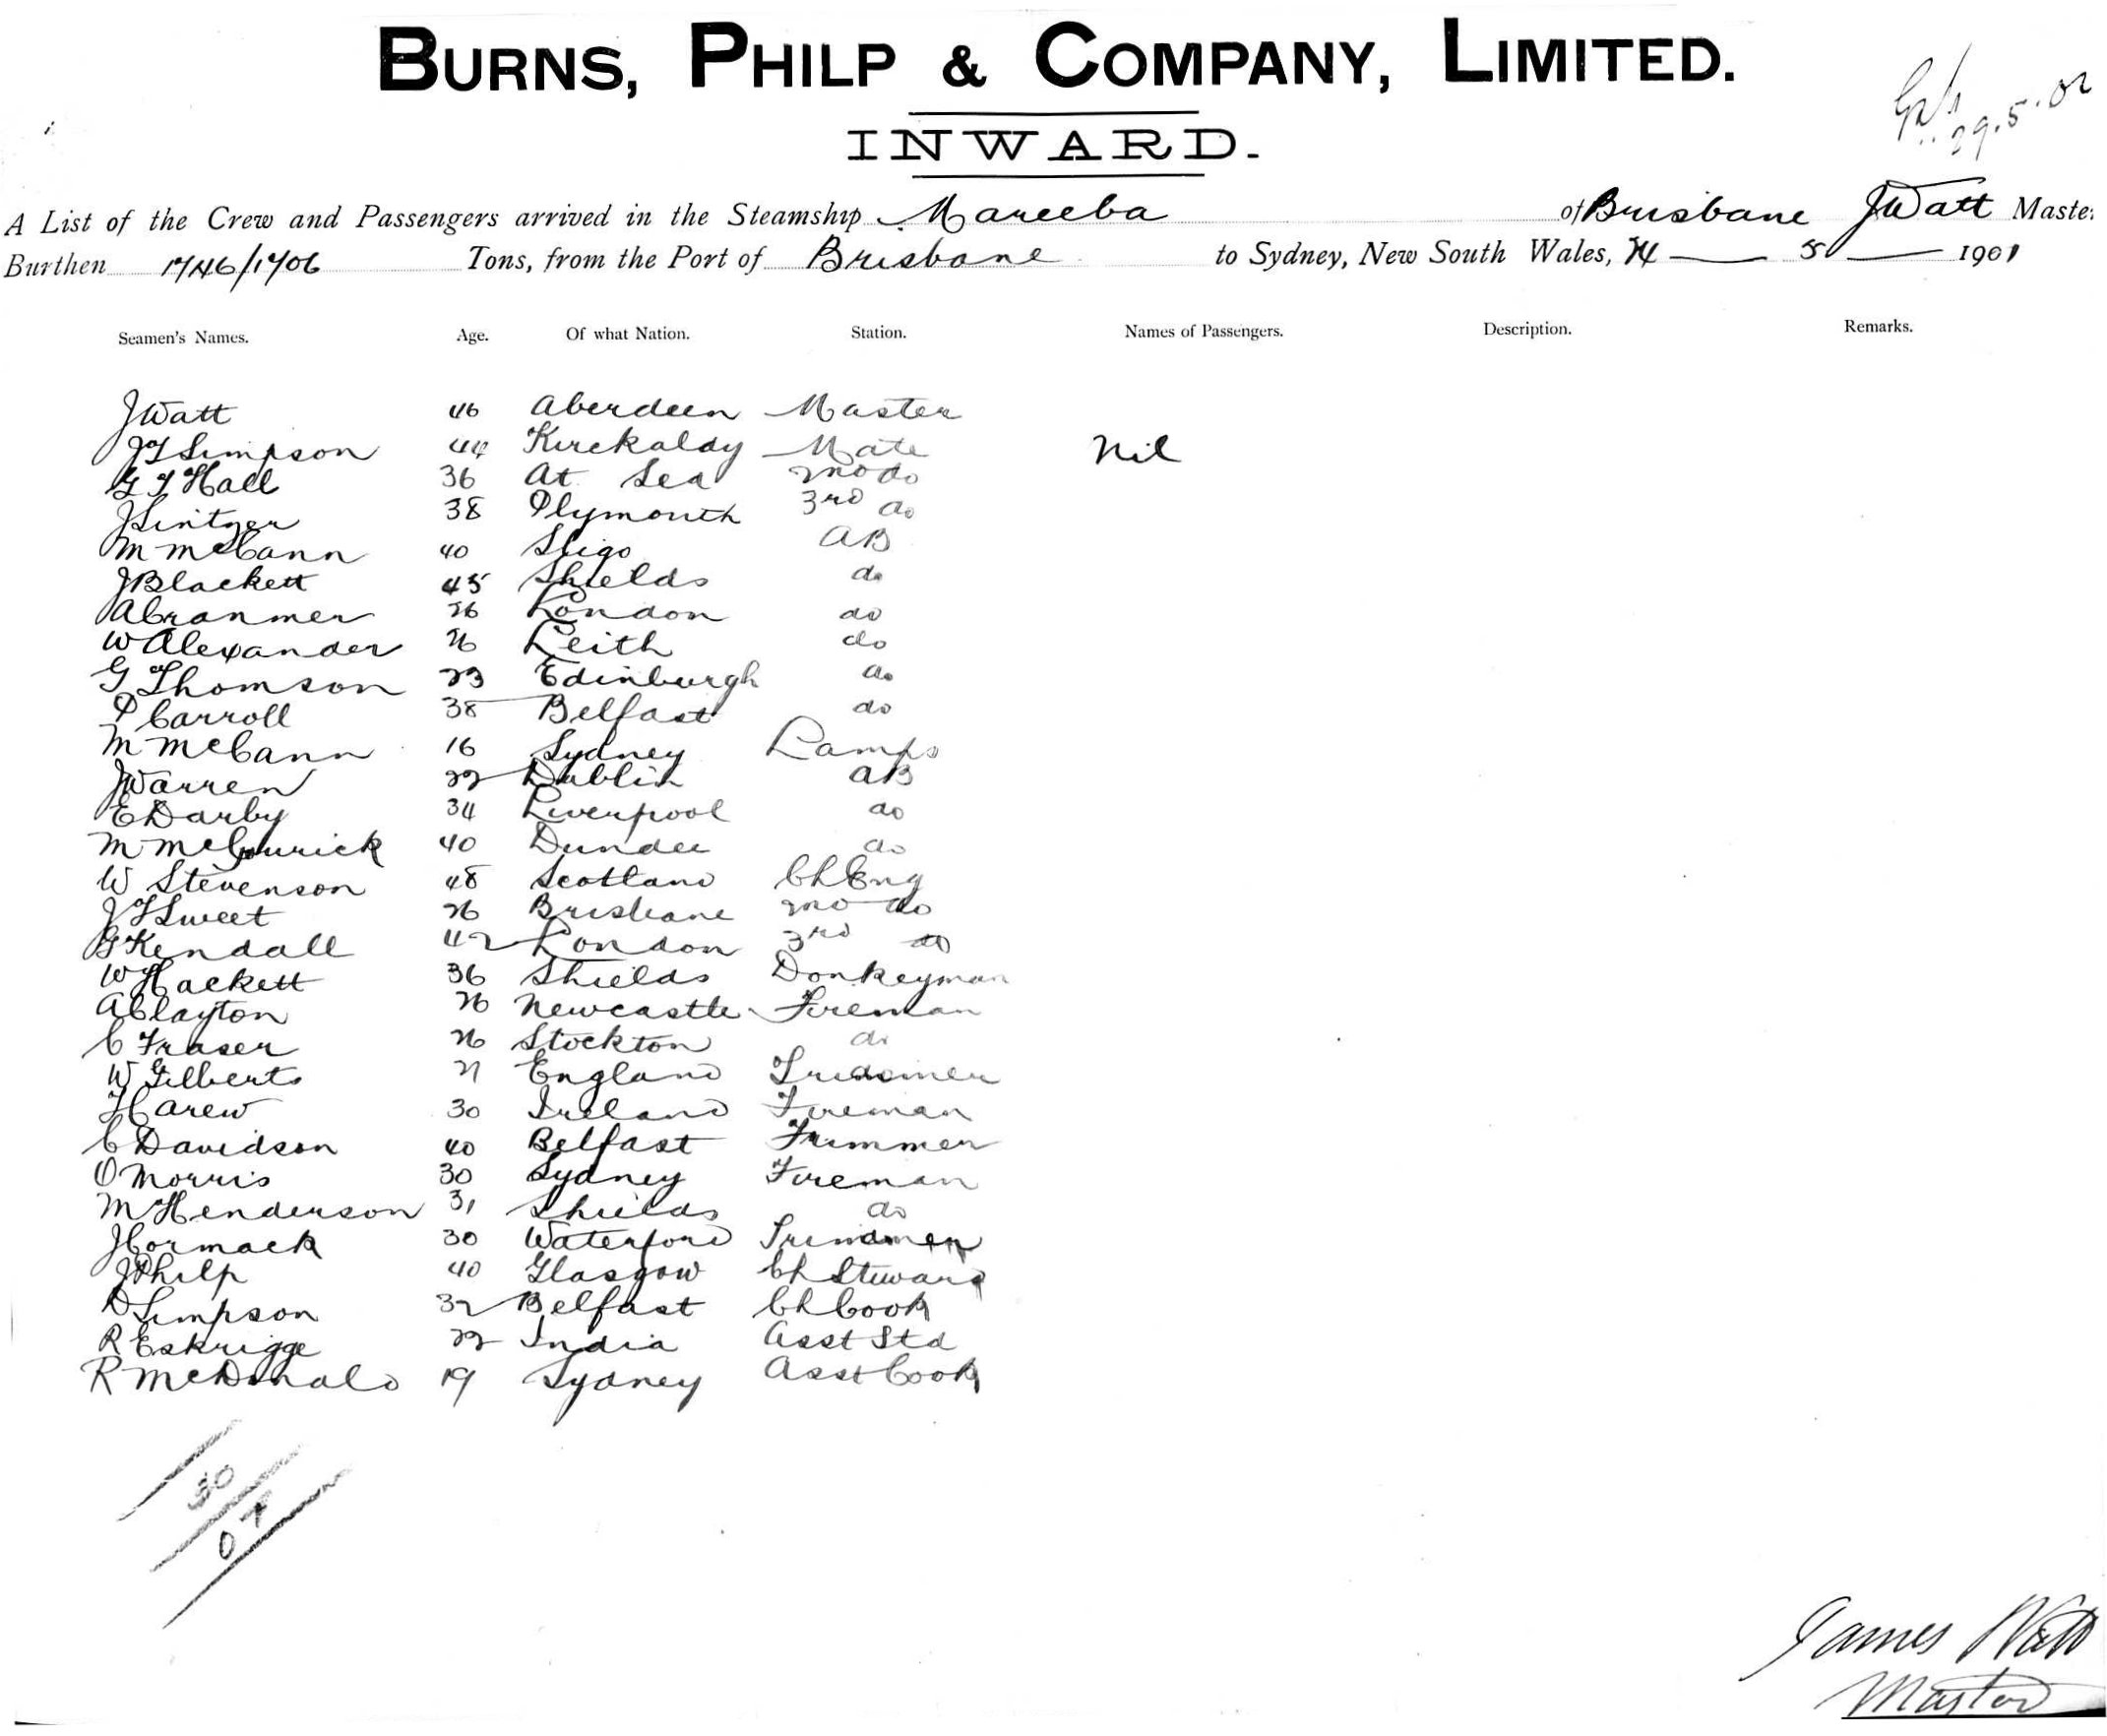 BURNS, PHILP & COMPANY, LIMITED.
INWARD.
29.5.02
A List of the Crew and Passengers arrived in the Steamship Mareeba of Brisbane J Watt Master
Burthen 1746/1706 Tons, from the Port of Brisbane to Sydney, New South Wales, 5 1901
Seamen's Names. Age. Of what Nation. Station. Names of Passengers. Description. Remarks.
J Watt 46 Aberdeen Master
J F Simpson 44 Kirckaldy Mate Nil
G F Hall 36 At Sea 2nd do
J 38 Plymouth 3rd do
M McCann 40 Sligo AB
J Blackett 45 Shields do
A Cranmer 26 London do
W Alexander 26 Leith do
G Thomson 23 Edinburgh do
P Carroll 38 Belfast do
M McCann 16 Sydney Lamps
J Warren 22 Dublin AB
E Darby 34 Liverpool do
M 40 Dundee do
W Stevenson 48 Scotland Ch Eng
J F Sweet 26 Brisbane 2nd do
G Kendall 42 London 3rd do
W Hackett 36 Shields Donkeyman
A Clayton 26 Newcastle Fireman
C Fraser 26 Stockton do
W Gilberts 21 England Trimmer
H Carew 30 Ireland Fireman
C Davidson 40 Belfast Trimmer
O Morris 30 Sydney Fireman
M Henderson 31 Shields do
J Cormack 30 Waterford Trimmer
J Philp 40 Glasgow Ch Steward
D Simpson 32 Belfast Ch Cook
R Eskrigge 22 India Asst Std
R McDonald 19 Sydney Asst Cook
30
James Watt
Master